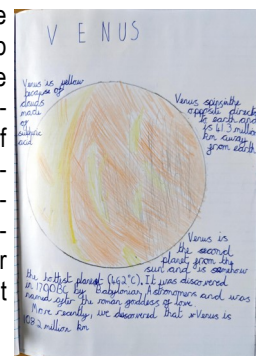 VENUS
Venus is yellow
because of
drugs
made
of
sulfuric
acid
Venus spins in the
opposite direct
to earth and
is 61.3 million
km away
from earth
Venus is
the second
planet from the
sun and is somehow
the hottest planet (462°C). It was discovered
in 1700BC by Babylonian Astronomers and was
named after the roman goddess of love
More recently, we discovered that Venus is
108.2 million km